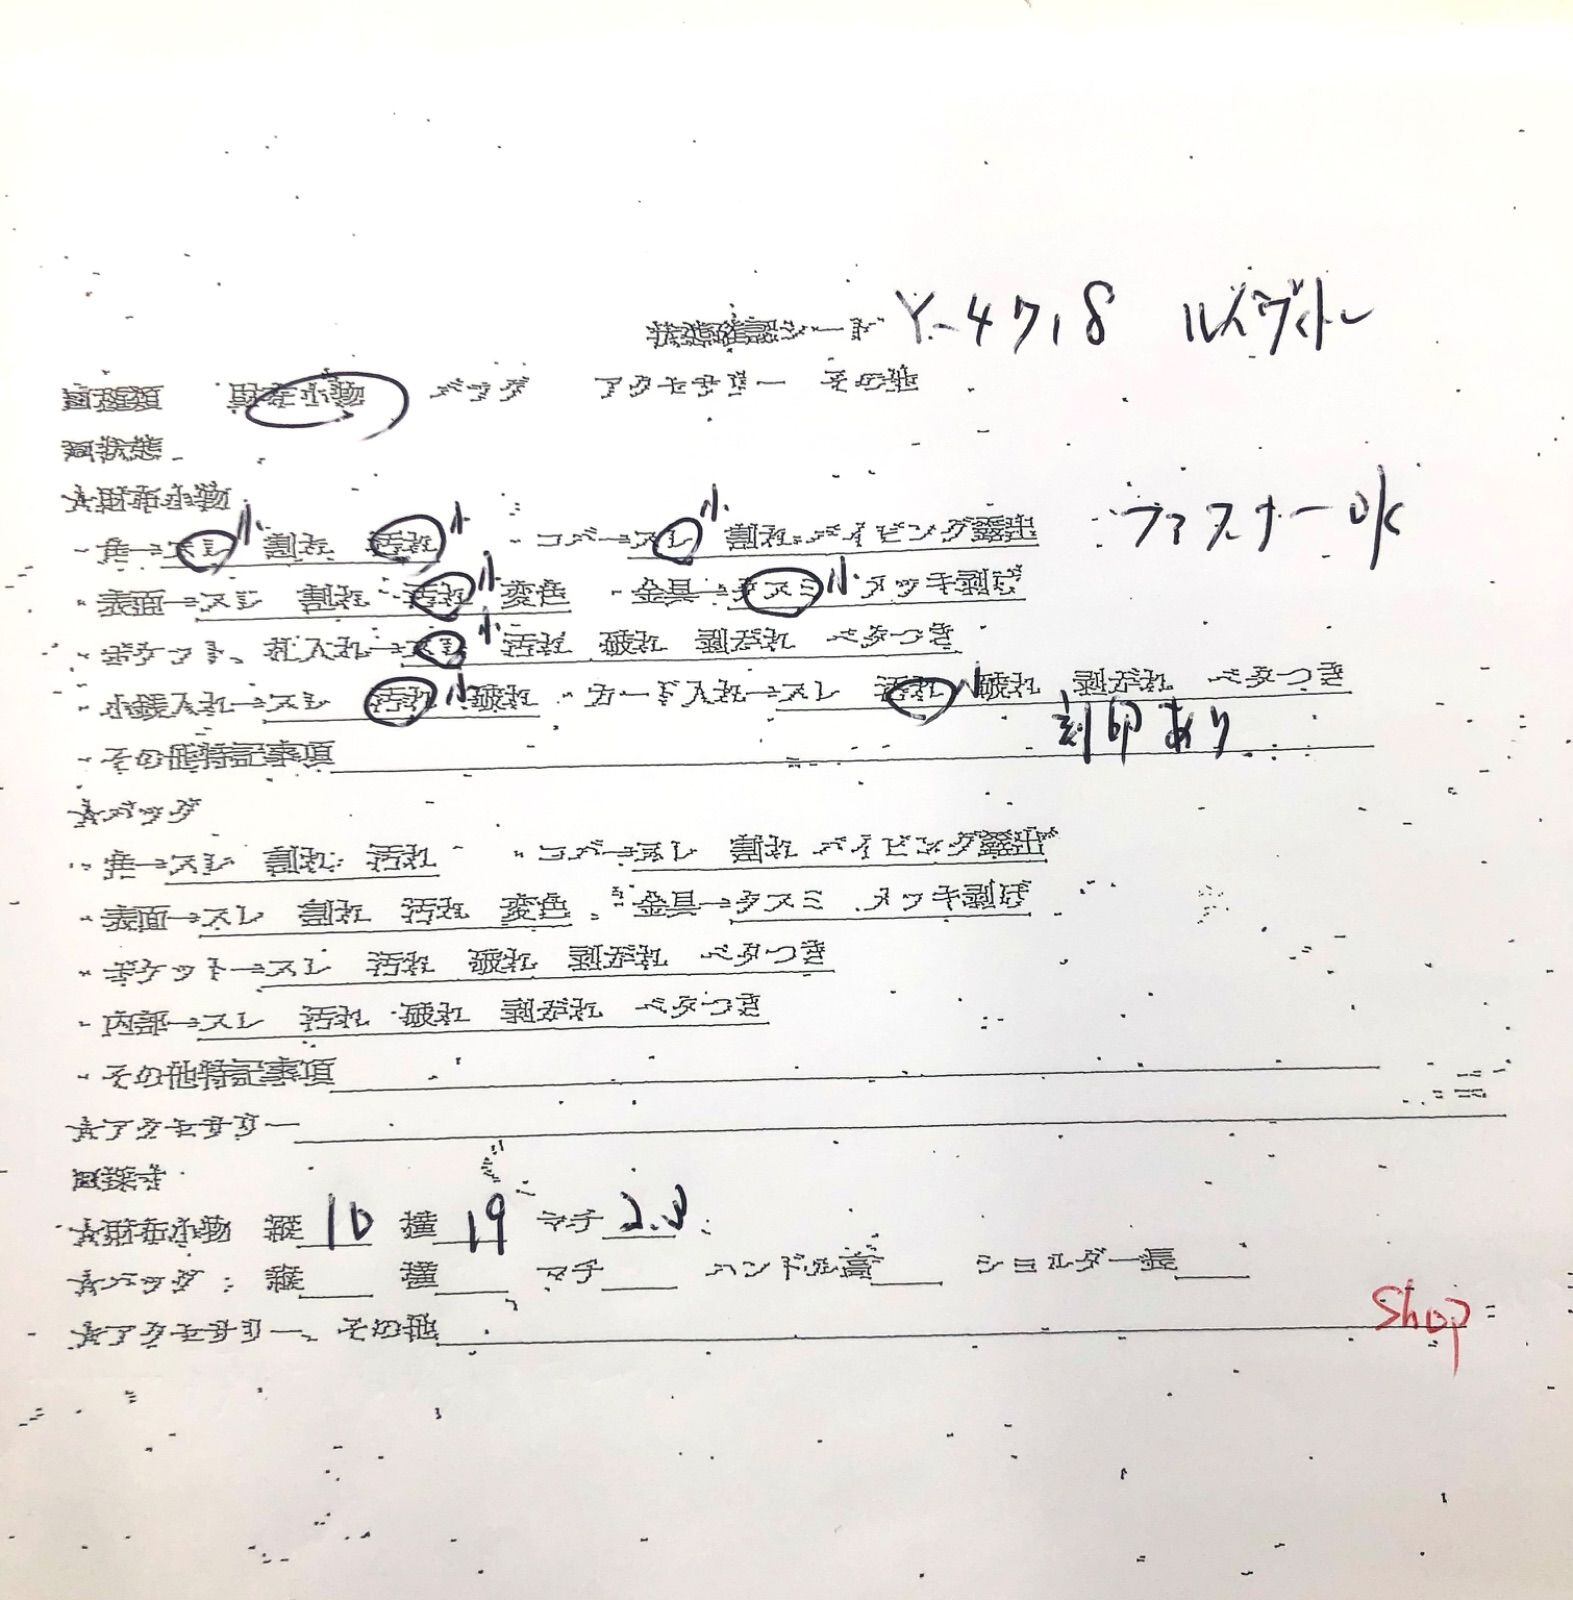 状態確認シート Y-4718 ルイヴィトン
□種類 財布小物 バッグ アクセサリー その他
□状態
☆財布小物
・角→スレ小 割れ 汚れ小 ・コバ→スレ小 割れ パイピング露出 ファスナーOK
・表面→スレ 割れ 汚れ小 変色 ・金具→クスミ小 メッキ剥げ
・ポケット、札入れ→スレ小 汚れ 破れ 剥がれ ベタつき
・小銭入れ→スレ 汚れ小 破れ ・カード入れ→スレ 汚れ小 破れ 剥がれ ベタつき
・その他特記事項 刻印あり
☆バッグ
・角→スレ 割れ 汚れ ・コバ→スレ 割れ パイピング露出
・表面→スレ 割れ 汚れ 変色 ・金具→クスミ メッキ剥げ
・ポケット→スレ 汚れ 破れ 剥がれ ベタつき
・内部→スレ 汚れ 破れ 剥がれ ベタつき
・その他特記事項
☆アクセサリー
□採寸
☆財布小物 縦 10 横 19 マチ
☆バッグ 縦 横 マチ ハンドル高 ショルダー長
☆アクセサリー、その他 Shop